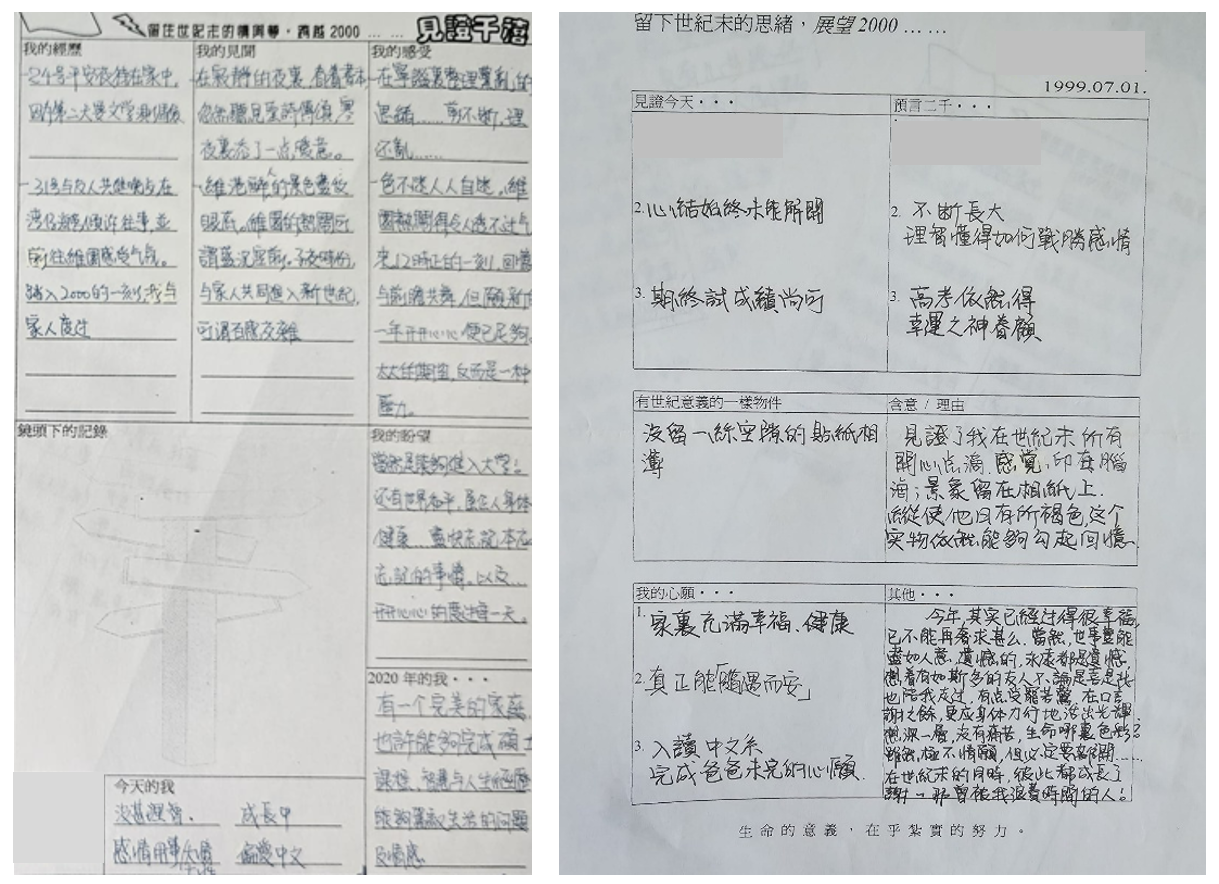 留住世紀末的情與夢，跨越2000 … …
見證千禧
我的經歷
-24号平安夜待在家中,
回
-31号与友人共
往事,並
前往維園感受气氛。
踏入2000的一刻,我与
家人度过
我的見聞
在寂靜的夜裏,看着書本
忽然聽見
夜裏添了一点暖意。
-維港醉人的景色盡收
眼底。維園的熱鬧可
謂盛況空前。子夜時份,
与家人共同進入新世紀,
可謂百感交雜
我的感受
-在寧謐裏整理蕓亂的
思緒……剪不断,理
还亂……
-色不迷人人自迷,維
園熱鬧得令人透不过气
來,12時正的一刻,回憶
与前瞻共舞,但願新的
一年开开心心便已足夠。
太大任期望,反而是一种
壓力。
鏡頭下的記錄
我的盼望
當然是能夠進入大學;
还有世界和平,
健康…盡快忘記本應
忘記的事情。以及…
开开心心的度过每一天。
2020年的我・・・
有一个完美的家庭
也許能夠完成碩士
課程。智慧与人生經歷
能夠
及情感
今天的我
沒甚涯。 成長中
感情用事 偏愛中文
留下世紀末的思緒，展望2000 … …
1999.07.01.
見證今天・・・
2. 心結始終未能解開
3. 期終試成績尚可
預言二千・・・
2. 不断長大
理智懂得如何戰勝感情
3. 高考依然得
幸運之神眷顧
有世紀意義的一樣物件
沒留一絲空隙的貼紙相
薄
含意 / 理由
見證了我在世紀末所有
開心点滴.感覺,印在腦
海;景象留在相紙上.
縱使他日有所褪色,这个
实物依然能夠勾起回憶
我的心願・・・
1. 家裏充滿幸福、健康
2. 真正能「隨遇而安」
3. 入讀中文系
完成爸爸未完的心願.
其他・・・
今年,其实已經过得很幸福,
已不能再奢求甚么.當然,世事豈能
盡如人意.遺憾的,永遠都是遺憾.
想着有如斯多的友人不論是喜是悲
也陪我度过,有点受寵若驚.在口言
謝之餘,更应身体力行地活出光輝.
想深一層,沒有痛苦,生命哪裏色彩?
雖然極不情願,但必定要離開……
在世紀末的同時,彼此都成長了
謝一那曾被我浪費時間的人!
生命的意義，在乎紮實的努力。